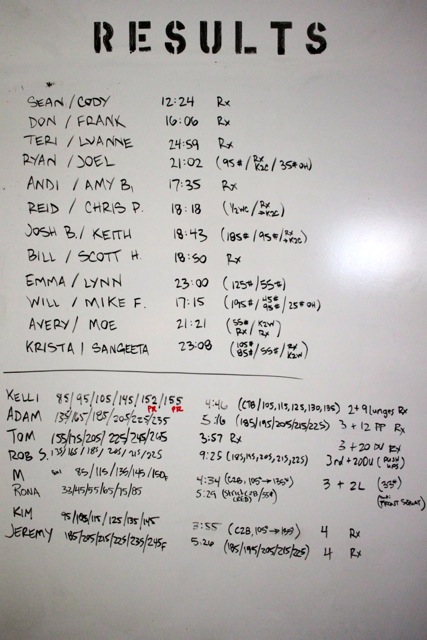 RESULTS
SEAN / CODY 12:24 Rx
DON / FRANK 16:06 Rx
TERI / LUANNE 24:59 Rx
RYAN / JOEL 21:02 (95# / Rx K2C / 35# OH)
ANDI / AMY B. 17:35 Rx
REID / CHRIS P. 18:18 (1/2WC / Rx K2C)
JOSH B. / KEITH 18:43 (185# / 95# / Rx K2C)
BILL / SCOTT H. 18:50 Rx
EMMA / LYNN 23:00 (125# / 55#)
WILL / MIKE F. 17:15 (195# / 45# 95# / 25# OH)
AVERY / MOE 21:21 (55# Rx / K2W Rx)
KRISTA / SANGEETA 23:08 (105# 85# / 55# / Rx K2W)
KELLI 85/95/105/145/152/155 4:46 (CTB/105,115,125,130,135) 2+9 lunges Rx
PR PR
ADAM 135/165/185/205/225/235 5:16 (185/195/205/215/225) 3+12 PP Rx
TOM 155/175/205/225/245/265 3:57 Rx 3+20 DU Rx
ROB S. 135/165/185/205/215/225 9:25 (185,195,205,215,225) 3rd+200U (PUSH UPS)
M 85/115/135/145/150F 4:34 (C2B, 105→135#) 3+2L (35#)
RONA 33/45/55/65/75/85 5:29 (RED)
FRONT SQUAT
KIM 95/105/115/125/135/145 7:55 (C2B, 105→135) 4 Rx
JEREMY 185/205/215/225/235/245F 5:26 (185/195/205/215/225) 4 Rx